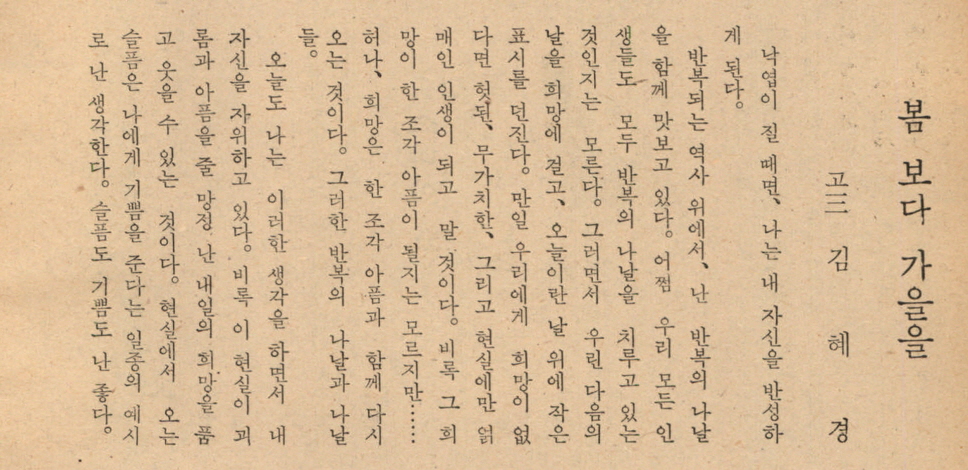 봄 보다 가을을
고三 김 혜 경
낙엽이 질 때면、나는 내 자신을 반성하
게 된다。
반복되는 역사 위에서、난 반복의 나날
을 함께 맛보고 있다。어쩜 우리 모든 인
생들도 모두 반복의 나날을 치루고 있는
것인지는 모른다。그러면서 우린 다음의
날을 희망에 걸고、오늘이란 날 위에 작은
표시를 던진다。만일 우리에게 희망이 없
다면 헛된、무가치한、그리고 현실에만 얽
매인 인생이 되고 말 것이다。비록 그 희
망이 한 조각 아픔이 될지는 모르지만……
허나、희망은 한 조각 아픔과 함께 다시
오는 것이다。그러한 반복의 나날과 나날
들。
오늘도 나는 이러한 생각을 하면서 내
자신을 자위하고 있다。비록 이 현실이 괴
롬과 아픔을 줄 망정 난 내일의 희망을 품
고 웃을 수 있는 것이다。현실에서 오는
슬픔은 나에게 기쁨을 준다는 일종의 예시
로 난 생각한다。슬픔도 기쁨도 난 좋다。